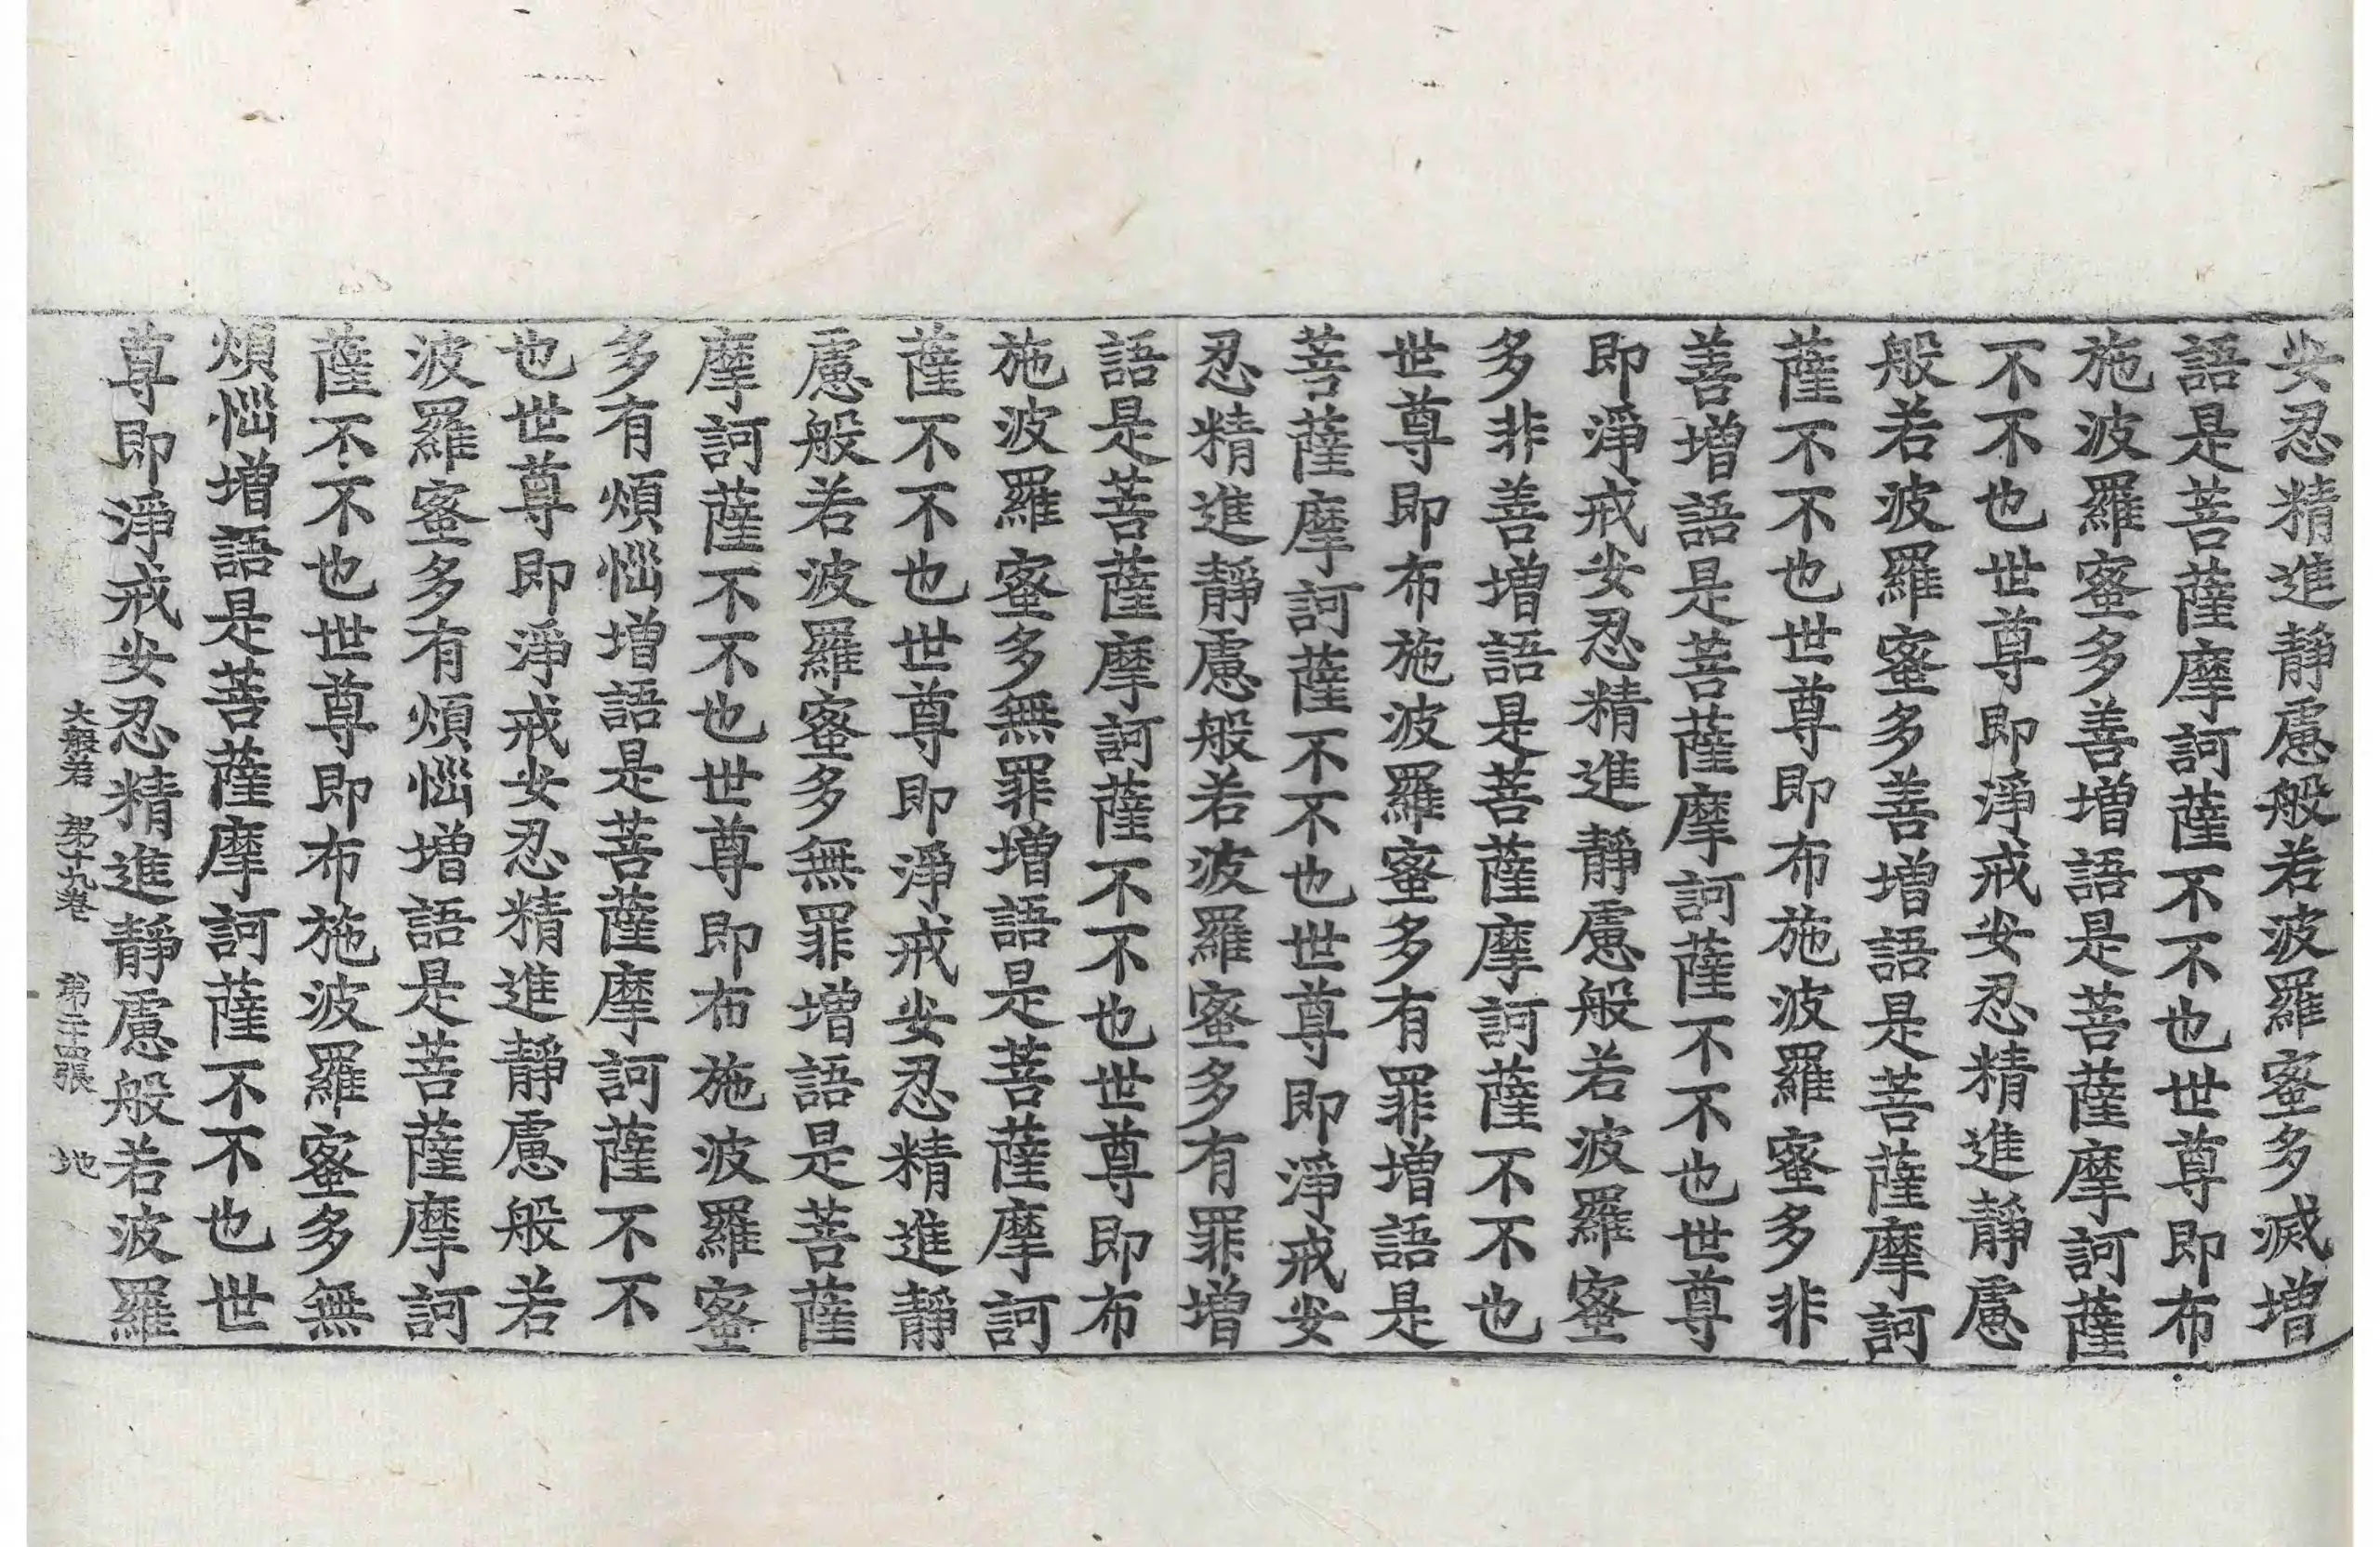 安忍精進靜慮般若波羅蜜多滅增
語是菩薩摩訶薩不不也世尊即布
施波羅蜜多善增語是菩薩摩訶薩
不不也世尊即淨戒安忍精進靜慮
般若波羅蜜多善增語是菩薩摩訶
薩不不也世尊即布施波羅蜜多非
善增語是菩薩摩訶薩不不也世尊
即淨戒安忍精進靜慮般若波羅蜜
多非善增語是菩薩摩訶薩不不也
世尊即布施波羅蜜多有罪增語是
菩薩摩訶薩不不也世尊即淨戒安
忍精進靜慮般若波羅蜜多有罪增
語是菩薩摩訶薩不不也世尊即布
施波羅蜜多無罪增語是菩薩摩訶
薩不不也世尊即淨戒安忍精進靜
慮般若波羅蜜多無罪增語是菩薩
摩訶薩不不也世尊即布施波羅蜜
多有煩惱增語是菩薩摩訶薩不不
也世尊即淨戒安忍精進靜慮般若
波羅蜜多有煩惱增語是菩薩摩訶
薩不不也世尊即布施波羅蜜多無
煩惱增語是菩薩摩訶薩不不也世
尊即淨戒安忍精進靜慮般若波羅
大般若 第十九卷 第二十四張 地